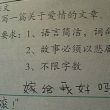 写一篇关于爱情的文章
要求：1、语言简洁，词
2、故事必须以悲剧
3、不限字数
嫁给我好吗
滚！